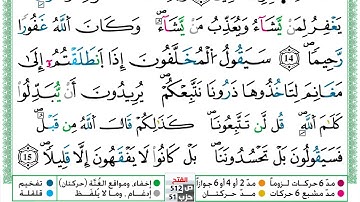 يَغْفِرُ لِمَن يَشَآءُ وَيُعَذِّبُ مَن يَشَآءُ ۚ وَكَانَ ٱللَّهُ غَفُورًا
رَّحِيمًا ﴿14﴾ سَيَقُولُ ٱلْمُخَلَّفُونَ إِذَا ٱنطَلَقْتُمْ إِلَىٰ
مَغَانِمَ لِتَأْخُذُوهَا ذَرُونَا نَتَّبِعْكُمْ ۖ يُرِيدُونَ أَن يُبَدِّلُوا۟
كَلَـٰمَ ٱللَّهِ ۚ قُل لَّن تَتَّبِعُونَا كَذَٰلِكُمْ قَالَ ٱللَّهُ مِن قَبْلُ ۖ
فَسَيَقُولُونَ بَلْ تَحْسُدُونَنَا ۚ بَلْ كَانُوا۟ لَا يَفْقَهُونَ إِلَّا قَلِيلًا ﴿15﴾
مدّ 6 حركات لزوماً مدّ 2 أو 4 أو 6 جوازاً الفتح ص 512 حزب 51 إخفاء، ومواقع الغُنَّة (حركتان) تفخيم
مدّ مشبع 6 حركات مدّ حركتان إدغام، وما لا يُلفَظ قلقلة